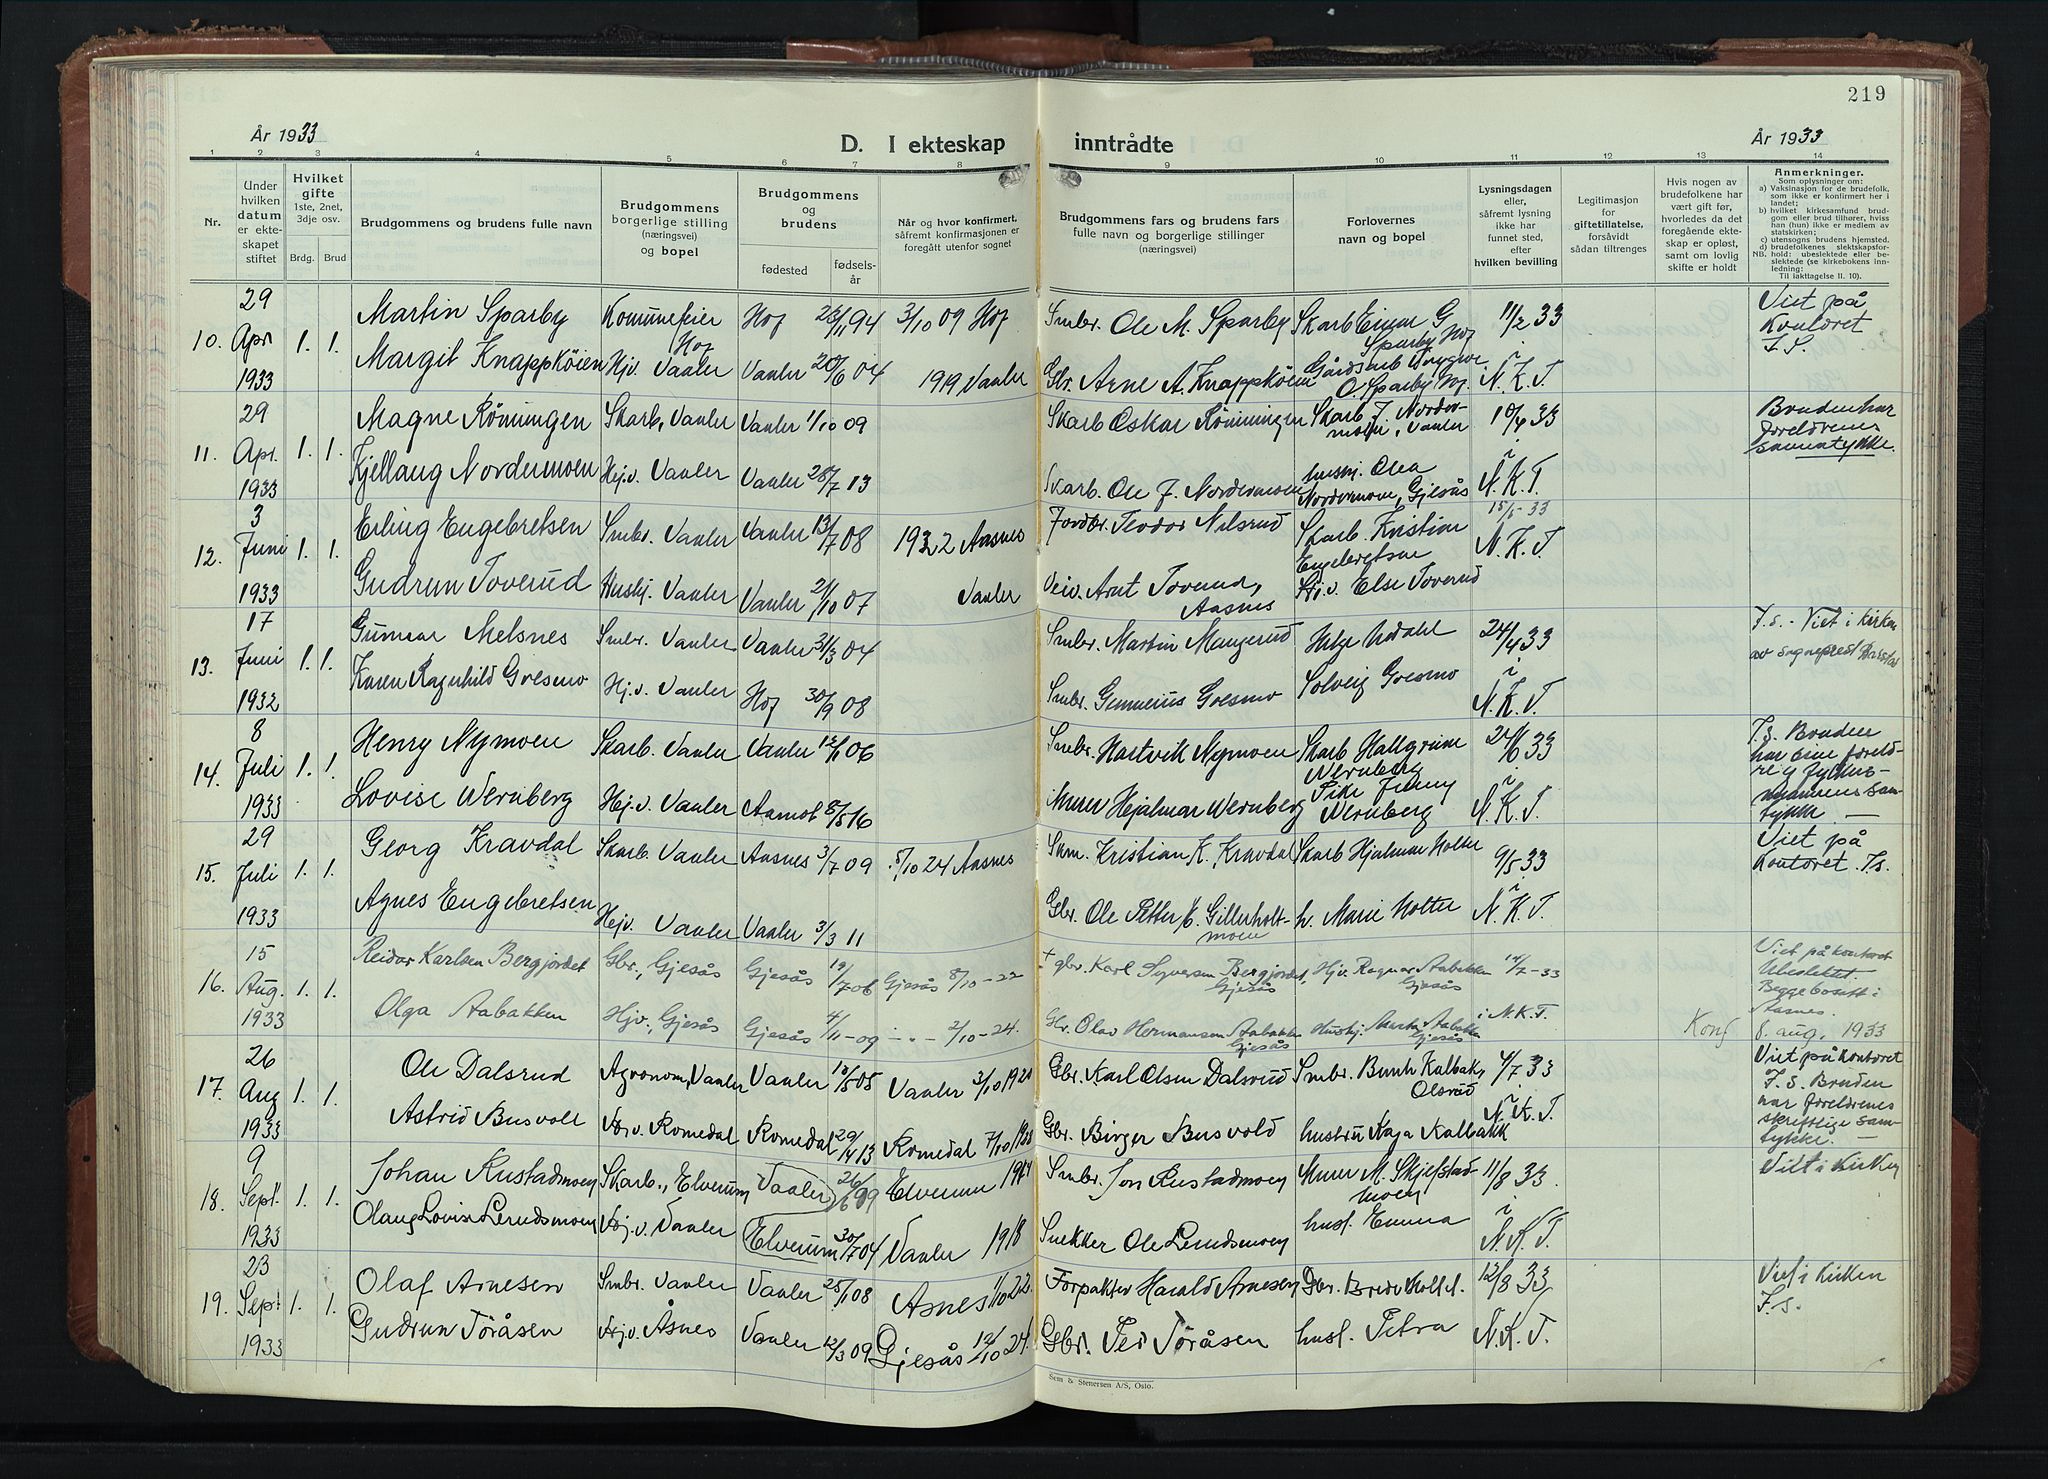 219
År 1933
D. I ekteskap
inntrådte
År 1933
1 2 3 4 5 6 7 8 9 10 11 12 13 14
Nr.
Under
hvilken
datum
er ekte-
skapet
stiftet
Hvilket
gifte
1ste, 2net,
3dje osv.
Brdg.
Brud
Brudgommens og brudens fulle navn
Brudgommens
borgerlige stilling
(næringsvei)
og bopel
Brudgommens
og
brudens
fødested
fødsels-
år
Når og hvor konfirmert,
såfremt konfirmasjonen er
foregått utenfor sognet
Brudgommens fars og brudens fars
fulle navn og borgerlige stillinger
(næringsvei)
Forlovernes
navn og bopel
Lysningsdagen
eller,
såfremt lysning
ikke har
funnet sted,
efter
hvilken bevilling
Legitimasjon
for
giftetillatelse,
forsåvidt
sådan tiltrenges
Hvis nogen av
brudefolkene har
vært gift før,
hvorledes da det
foregående ekte-
skap er opløst,
samt om lovlig
skifte er holdt
Anmerkninger.
Som oplysninger om:
a) Vaksinasjon for de brudefolk,
som ikke er konfirmert her i
landet;
b) hvilket kirkesamfund brud-
gom eller brud tilhører, hviss
han (hun) ikke er medlem av
statskirken;
c) utensogns brudens hjemsted.
d) brudefolkenes slektskapsfor-
NB. hold: ubeslektede eller be-
slektede (se kirkebokens inn-
ledning:
Til iakttagelse II. 10).
10. 29 Apr 1933 1. 1.
Martin Sparby Kommuneeier Hof Hof 23/11 94 3/10 09 Hof Smbr. Ole M. Sparby Skarb Einar G Sparby Hof 11/2 33 Viet på Kontoret
Margit Knappköien Hj.v. Vaaler Vaaler 20/6 04 1919 Vaaler Gbr. Arne A. Knappköien Gårdsarb Trygve O. Sparby Hof i N. K. T.
11. 29 Apr. 1933 1. 1.
Magne Röningen Skarb, Vaaler Vaaler 1/10 09 Skarb Oskar Rönningen Skarb J. Nordermoen, Vaaler 10/4 33 Bruden har foreldrenes samtykke.
Kjellaug Nordermoen Hej.v. Vaaler Vaaler 28/7 13 Skarb. Ole J. Nordermoen huskj. Olea Nordermoen, Gjesås i N. K. T.
12. 3 Juni 1933 1. 1.
Erling Engebretsen Smbr. Vaaler Vaaler 13/7 08 1922 Aasnes Teodor Nilsrud Skarb Kristian Engebretsen 15/5-33
Gudrun Toverud Huskj. Vaaler Vaaler 21/10 07 Vaaler Veiv. Arnt Toverud, Aasnes Hj.v. Else Toverud N. K. T.
13. 17 Juni 1932 1. 1.
Gunnar Melsnes Smbr. Vaaler Vaaler 31/3 04 Smbr. Martin Maugerud Helge Usdahl 24/4 33 F. s. - Viet i kirken av sogneprest
Karen Ragnhild Goesmo Hj.v. Vaaler Hof 30/9 08 Smbr. Gunnerius Goesmo Solveig Goesmo i N. K. T.
14. 8 Juli 1933 1. 1.
Henry Nymoen Skarb. Vaaler Vaaler 12/11 06 Smbr. Hartvik Nymoen Skarb Hallgrim Wernberg 24/6 33 F. s. Bruden har sine foreldre og fylkesmannens samtykke. —
Lovise Wernberg Hej.v. Vaaler Aamot 8/5 16 Murer Hjalmar Wernberg Pike Jenny Wernberg i N. K. T.
15. 29 Juli 1933 1. 1.
Georg Kravdal Skarb. Vaaler Aasnes 3/7 09 5/10 24 Aasnes Skm. Kristian K. Kravdal Skarb Hjalmar Holter 9/5 33 Viet på kontoret. F.s.
Agnes Engebretsen Hejv. Vaaler Vaaler 3/3 11 Gbr. Ole Petter E. Gillerholtmoen h. Marie Holter i N. K. T.
16. 15 Aug. 1933 1. 1.
Reidar Karlsen Bergjordet Gbr., Gjesås Gjesås 19/7 06 Gjesås 8/10-22 + gbr. Karl Syversen Bergjordet, Gjesås Hjv. Ragnar Aabakken Gjesås 14/7-33 Viet på kontoret Ubeslektet. Begge bosatt i Aasnes.
Olga Aabakken Hjv., Gjesås Gjesås 4/11-09 - " - 2/10-24. Gbr. Olav Hermansen Aabakken Gjesås Huskj. Marta Aabakken Gjesås i N.K.T. Konf 8. aug. 1933
17. 26 Aug 1933 1. 1.
Ole Dalsrud Agronom, Vaaler Vaaler 10/5 05 Vaaler 3/10 1920 Gbr. Karl Olsen Dalsrud Smbr. Bernh Kalbak, Olsrud 4/7 33 Viet på kontoret F. s. Bruden har foreldrenes skriftlige samtykke. —
Astrid Busvolt Hj.v. Romedal Romedal 29/4 13 Romedal 7/10 1928 Gbr. Birger Busvold hustru Kaja Kalbakk i N. K. T.
18. 9 Sept. 1933 1. 1.
Johan Rustadmoen Skarb., Elverum Vaaler 26/6 99 Elverum 1914 Smbr. Jon Rustadmoen Murer M. Skjefstadmoen 11/8 33. Viet i kirken
Olaug Lovise Lerudsmoen Hj.v. Vaaler Elverum 30/7 04 Vaaler 1918 Snekker Ole Lerudsmoen hust. Emma i N. K. T.
19. 23 Sept 1933 1. 1.
Olaf Arnesen Smbr. Vaaler Vaaler 25/1 08 Åsnes 1/10 22. Forpakter Harald Arnesen Gbr. Brede Holtet. 12/8 33 Viet i kirken F.s.
Gudrun Töråsen Hj.v. Åsnes Vaaler 12/3 09 Gjesås 12/10 24. Gbr. Per Töråsen hust. Petra N. K. T.
Sem & Stenersen A/S, Oslo.